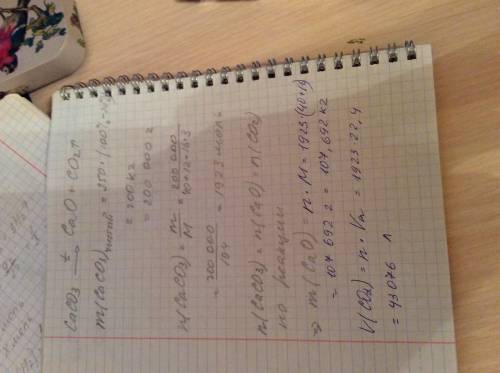 CaCO3 t→ CaO + CO2↑
m(CaCO3) чистый = 250·(100%-20%)
= 200 кг
= 200 000 г
n(CaCO3) = m/M = 200 000/40+12+16·3
= 200 000/104 = 1923 моль
n(CaCO3) = n(CaO) = n(CO2)
по реакции
⇒ m(CaO) = n·M = 1923·(40+16)
= 107 692 г = 107,692 кг
V(CO2) = n·Vm = 1923·22,4
= 43076 л